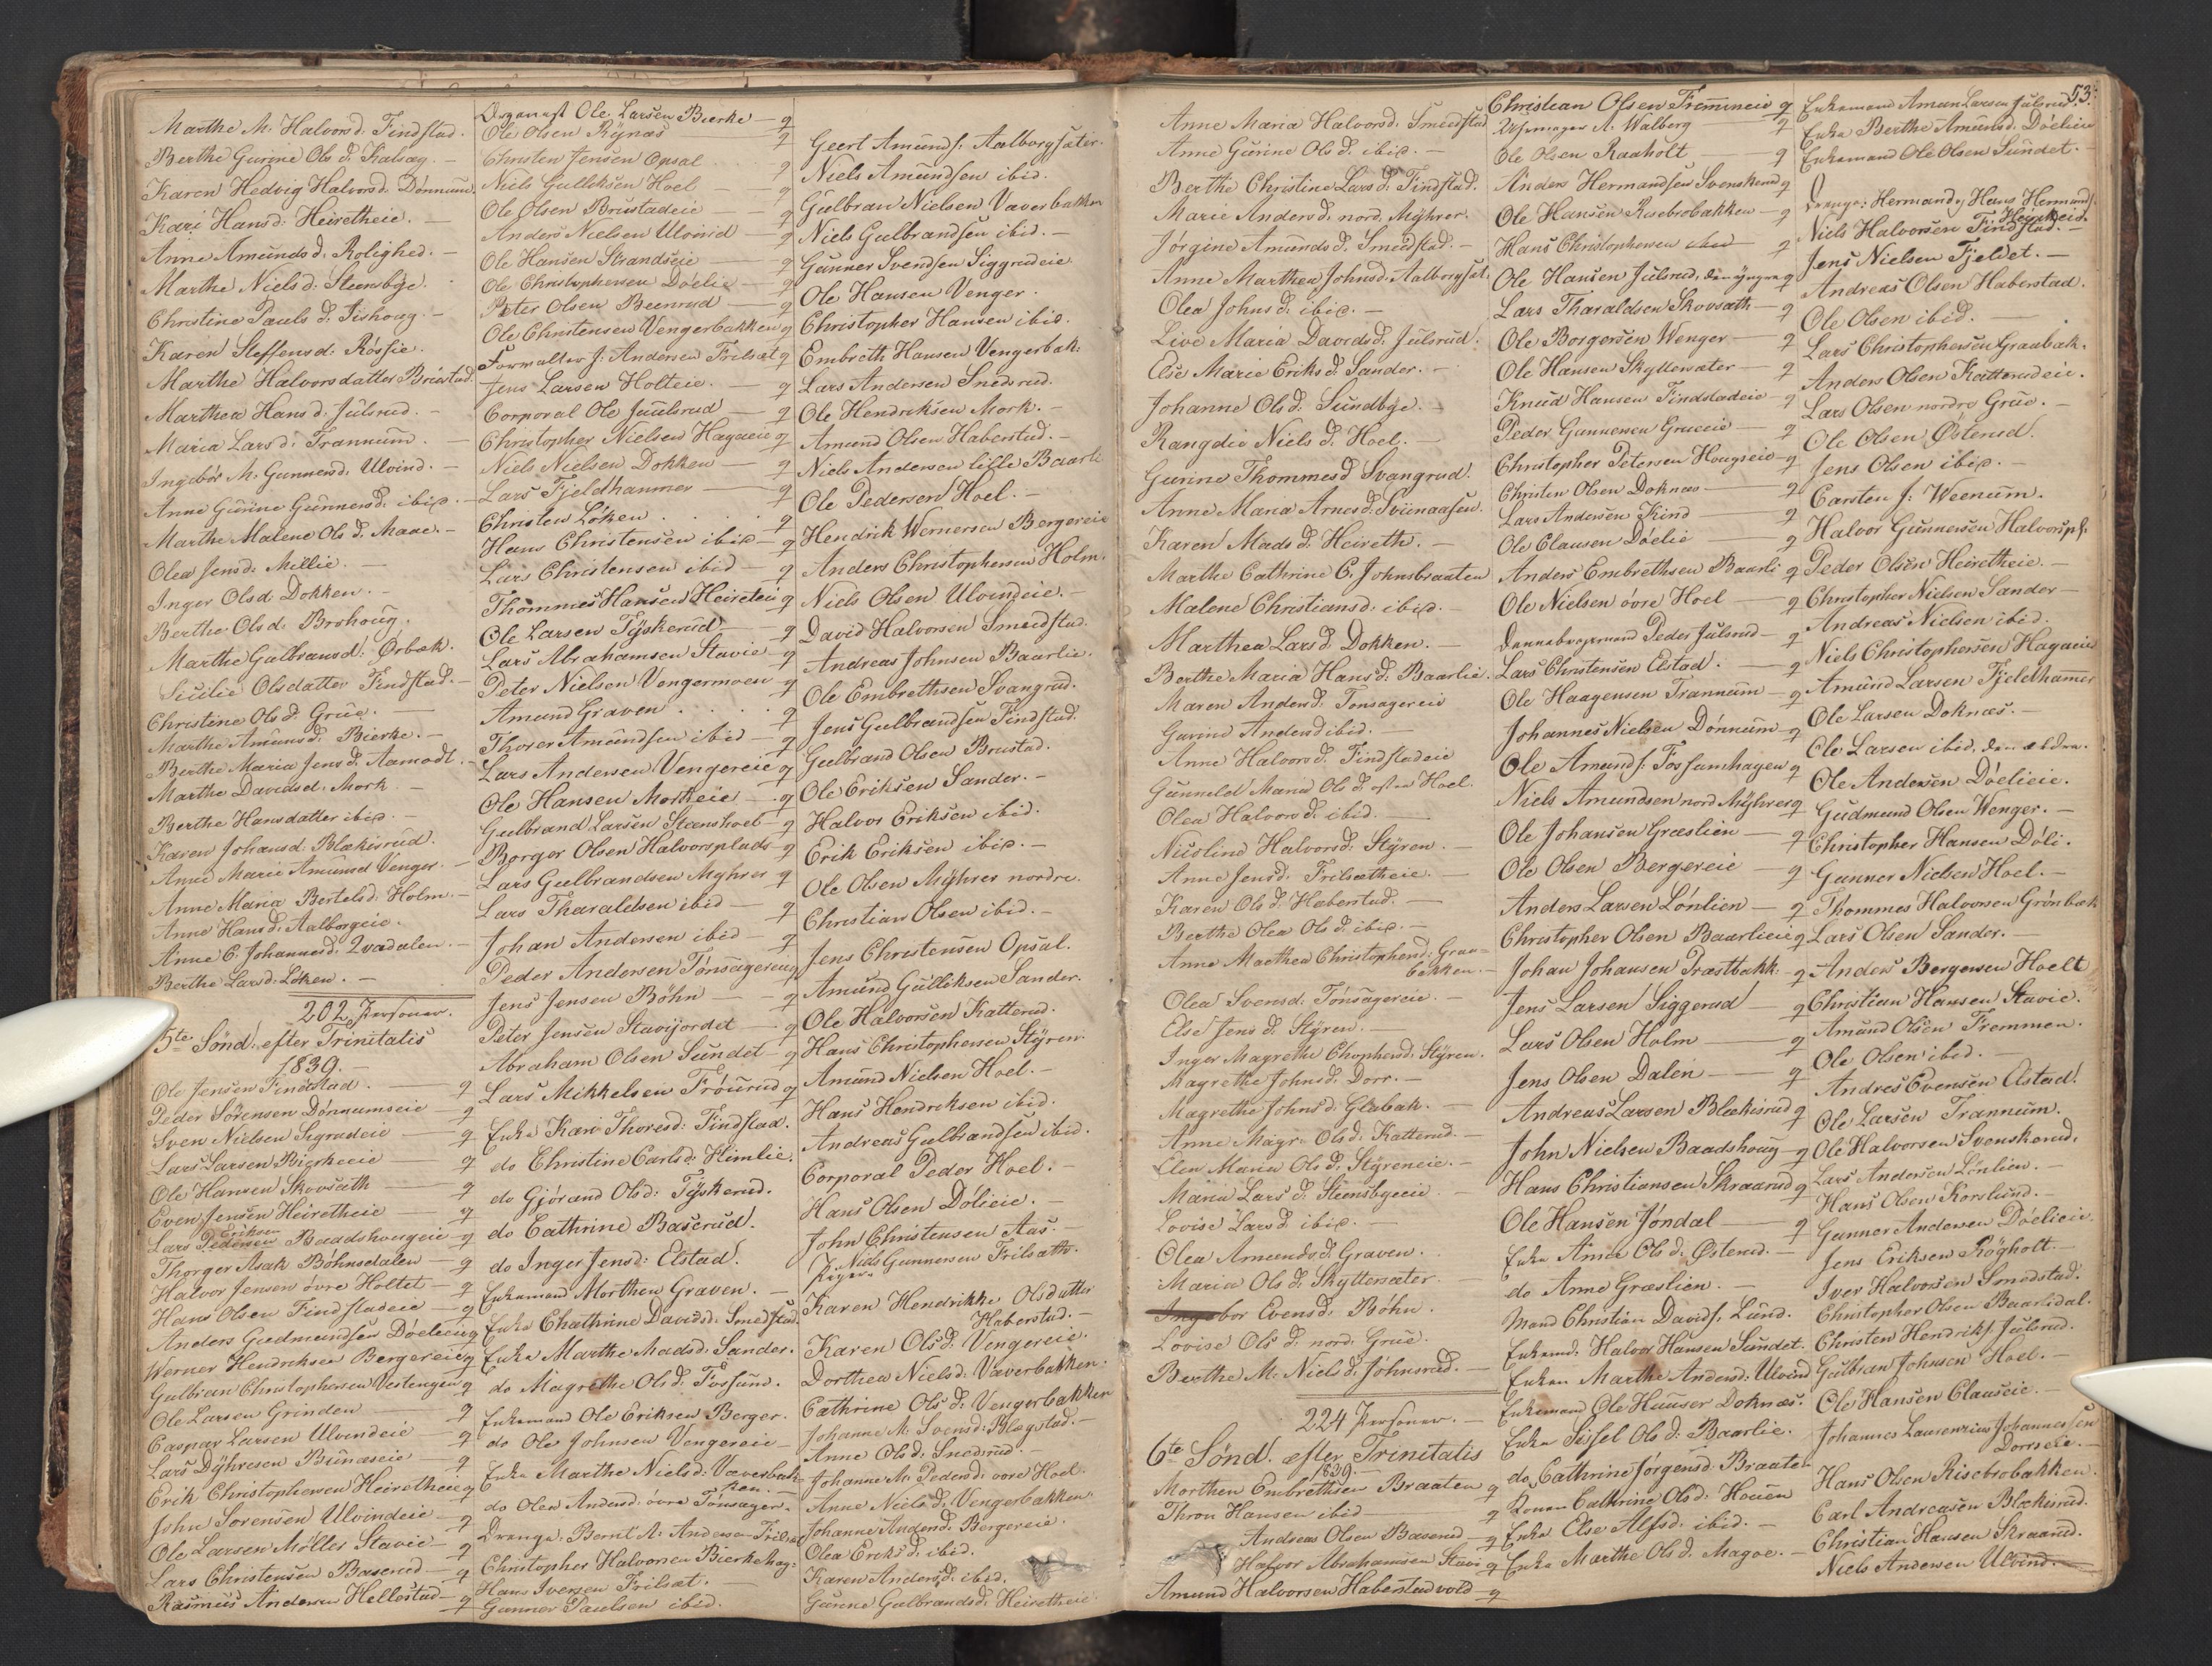 Marthe M. Halvorsd. Findstad.
Berthe Gurine Ols d. Kalsag. -
Karen Hedvig Halvorsd. Dønnum.
Kari Hansd: Heiretheie. -
Anne Amundsd. Rolighed. -
Marthe Nielsd: Steensbye.
Christine Pauls d. Fishoug. -
Karen Steffensd. Røsie.
Marthe Halvorsdatter Brustad.
Marthea Hansd. Julsrud. -
Maria Larsd. Trannum. -
Ingebor M. Gunnersd. Ulvind. -
Anne Gurine Gunnersd. ibid. -
Marthe Malene Ols d. Maae. -
Olea Jensd. Millie. -
Inger Olsd. Dokken. -
Berthe Olsd. Brohoug.
Marthe Gulbransd: Ørbek.
Sicilie Olsdatter Findstad. -
Christine Ols d. Grue. -
Marthe Amunsd. Bierke. -
Berthe Maria Jensd. Aamodt. -
Marthe Davidsd. Mork -
Berthe Hansdatter ibid. -
Karen Johansd. Blækisrud.
Anne Marie Amunsd Venger. -
Anne Maria Bertelsd. Holm. -
Anne Hansd. Aalborgeie.
Anne C. Johannesd. Qvadalen. -
Berthe Larsd. Løken. -
202 Personer.
5te Sønd. efter Trinitatis
1839. -
Ole Jensen Findstad. - g
Peder Sørensen Dønnumseie - g
Sven Nielsen Segrudeie - g
Lars Larsen Bierkeeie - g
Ole Hansen Skovsæth - g
Even Jensen Heiretheie - g
Eriksen
Lars Pedersen Baadshougeie - g
Thorger Asak Bøhnsdalen - g
Halvor Jensen øvre Holtet - g
Hans Olsen Findstadeie - g
Anders Gudmundsen Døelieie g
Werner Hendriksen Bergereie g
Gulbran Christophersen Vestengen g
Ole Larsen Grinden - g
Caspar Larsen Ulvindeie - g
Lars Dyhresen Bunaseie - g
Erik Christophersen Heiretheie g
John Sørensen Ulvindeie - g
Ole Larsen Møller Stavie - g
Lars Christensen Baserud - g
Rasmus Andersen Hellestad - g
Organist Ole Larsen Bierke - g
Ole Olsen Rynas - g
Christen Jensen Opsal - g
Niels Gulliksen Hoel - g
Ole Olsen Brustadeie - g
Anders Nielsen Ulvind - g
Ole Hansen Strandseie - g
Ole Christophersen Døelie - g
Peter Olsen Beenrud - g
Ole Christensen Vengerbakken g
Forvalter J. Andersen Frilset g
Jens Larsen Holteie. - g
Corporal Ole Juulsrud - g
Christopher Nielsen Hagaeie g
Niels Nielsen Dokken - g
Lars Fjeldhammer - g
Christen Løken . . . g
Hans Christensen ibid - g
Lars Christensen ibid - g
Thommes Hansen Heireteie g
Ole Larsen Tyskerud - g
Lars Abrahamsen Stavie - g
Peter Nielsen Vengermoen g
Amund Graven . . . g
Thorer Amundsen ibid - g
Lars Andersen Vengereie g
Ole Hansen Morkeie - g
Gulbrand Larsen Steenshoel - g
Borger Olsen Halvorsplads - g
Lars Gulbrandsen Myhrer g
Lars Tharaldsen ibid - g
Johan Andersen ibid - g
Peder Andersen Tønsagereie g
Jens Jensen Bøhn - g
Peter Jensen Stavijordet - g
Abraham Olsen Sundet - g
Lars Mikkelsen Frøurud g
Enke Kari Thoresd: Findstad.
do Christine Carlsd: Himlie.
do Gjørand Olsd: Tyskerud.
do Cathrine Baserud.
do Inger Jensd: Elstad.
Enkemand Morthen Graven. -
Enke Chathrine Davidsd. Smedstad.
Enke Marthe Madsd: Sander.
do Magrethe Olsd: Fossum.
Enkemand Ole Eriksen Berger.
do Ole Johnsen Vengereie -
Enke Marthe Nielsd: Væverbak-
ken. -
do Olea Andersd. øvre Tønsager -
Drenge: Bernt A. Andersen Frilset
Christopher Halvorsen Bierkehag:
Hans Iversen Frilset. -
Gunner Paulsen ibid.
Geert Amunds: Aalborgsæter.
Niels Amundsen ibid.
Gulbran Nielsen Væverbakken
Niels Gulbrandsen ibid. -
Gunner Svendsen Siggrudeie
Ole Hansen Venger.
Christopher Hansen ibid.
Embreth Hansen Vengerbak:
Lars Andersen Snedsrud.
Ole Hendriksen Mork. -
Amund Olsen Haberstad. -
Niels Andersen lille Baarli
Ole Pedersen Hoel. -
Hendrik Wernersen Bergereie
Anders Christophersen Holm.
Niels Olsen Ulvindeie. -
David Halvorsen Smedstad.
Andreas Johnsen Baarlie.
Ole Embrethsen Svangrud.
Jens Gulbrandsen Findstad.
Gulbrand Olsen Brustad.
Ole Eriksen Sander. -
Halvor Eriksen ibid.
Erik Eriksen ibid. -
Ole Olsen Myhrer nordre.
Christian Olsen ibid. -
Jens Christensen Opsal.
Amund Gulliksen Sander.
Ole Halvorsen Katterud.
Hans Christophersen Styren.
Amund Nielsen Hoel. -
Hans Hendriksen ibid.
Andreas Gulbrandsen ibid.
Corporal Peder Hoel. -
Hans Olsen Dølieie. -
John Christensen Aas. -
Niels Gunnersen Frilseth.
Piger:
Karen Hendrikke Olsdatter
Haberstad. -
Karen Olsd: Vengereie.
Dorthea Nielsd: Væverbakken.
Cathrine Ols d: Vengerbakken
Johanne M. Svensd: Blegstad. -
Anne Olsd: Snedsrud. -
Johanne M. Pedersd: øvre Hoel.
Anne Niels d. Vengerbakken.
Johanne Andersd. Bergereie.
Olea Eriks d. ibid.
Karen Andersd. ibid.
Gurine Gulbrandsd. Heiretheie.
53.
Anne Maria Halvorsd. Smedstad
Anne Gurine Ols d. ibid. -
Berthe Christine Lars d. Findstad.
Marie Anders d. nord. Myhrer.
Jørgine Amundsd. Smedstad. -
Anne Marthea Johnsd. Aalborgset.
Olea Johnsd. ibid. -
Live Maria Davidsd. Julsrud.
Else Marie Eriks d. Sander. -
Johanne Ols d. Sundbye. -
Rangdie Niels d. Hoel. -
Gurine Thommesd Svangrud.
Anne Maria Arnesd. Sviinaasen.
Karen Mads d. Heireth. -
Marthe Cathrine C. Johnsbraaten
Malene Christiansd. ibid. -
Marthea Lars d. Dokken. -
Berthe Maria Hans d. Baarlie.
Maren Andersd. Tonsagereie
Gurine Andersd ibid. -
Anne Halvorsd. Findstadeie
Gunneld Maria Ols d. Hoel.
Olea Halvorsd. ibid. -
Nicoline Halvorsd. Styren. -
Anne Jensd. Frilsetheie. -
Karen Ols d. Haberstad. -
Berthe Olea Ols d. ibid. -
Anne Marthea Christophersd. Graa-
bakken. -
Olea Svensd. Tønsagereie. -
Else Jens d. Styren. -
Inger Magrethe Chrophersd. Styren.
Magrethe Johnsd. Dorr. -
Magrethe Johns d. Glabak. -
Anne Magr. Olsd. Katterud. -
Elen Maria Ols d. Styreneie. -
Maria Lars d. Steensbyeeie -
Lovise Lars d. ibid. -
Olea Amunds d. Graven.
Maria Ols d. Skyttersæter. -
Ingebor Evens d. Bøhn.
Lovise Ols d. nord. Grue. -
Berthe M. Niels d. Johnsrud. -
224 Personer. -
6te Sønd. efter Trinitatis
1839. -
Morthen Embrethsen Braaten g
Thron Hansen ibid - g
Andreas Olsen Baserud - g
Halvor Abrahamsen Stavi g
Amund Halvorsen Haberstadvold - g
Christian Olsen Fremmeneie g
A. Walberg g
Ole Olsen Raaholt - g
Anders Hermandsen Svenskerud g
Ole Hansen Risebrobakken - g
Hans Christophersen ibid g
Ole Hansen Julsrud, den yngre g
Lars Tharaldsen Skovsæth - g
Ole Borgersen Wenger - g
Ole Hansen Skyttersæter - g
Knud Hansen Findstadeie - g
Peder Gunnersen Grueeie - g
Christopher Petersen Hougseie - g
Christen Olsen Doknæs - g
Lars Andersen Kind - g
Ole Clausen Døelie - g
Anders Embrethsen Baarli g
Ole Nielsen øvre Hoel - g
Dannebrogsmand Peder Julsrud - g
Lars Christensen Elstad. - g
Ole Haagensen Trannum - g
Johannes Nielsen Dønnum - g
Ole Amunds: Fossumhagen g
Niels Amundsen nord Myhrer g
Ole Johansen Græslien - g
Ole Olsen Bergereie - g
Anders Larsen Lønlien - g
Christopher Olsen Baarlieie g
Johan Johansen Præstbakk. - g
Jens Larsen Siggerud - g
Lars Olsen Holm - g
Jens Olsen Dalen - g
Andreas Larsen Blækisrud g
John Nielsen Baadshoug - g
Hans Christiansen Skraarud g
Ole Hansen Jøndal - g
Enke Anne Ols d. Østerud. -
do Anne Græslien. -
Mand Christian Davids. Lund.
Enkemd. Halvor Hansen Sundet.
Enken Marthe Andersd. Ulvind
Enkemand Ole Hanser Doknæs.
Enke Sissel Ols d. Baarlie.
do Cathrine Jørgensd. Braaten
Konen Cathrine Olsd. Houen
Enke Else Alfsd. ibid. -
Enke Marthe Ols d. Magoe. -
Enkemand Amun Larsen Julsrud.
Enke Berthe Amunsd. Døelieie
Enkemand Ole Olsen Sundet. -
Drenge: Hermand Hans Hermands:
Niels Halvorsen Findstad. -
Jens Nielsen Fjeldet. -
Andreas Olsen Haberstad.
Ole Olsen ibid. -
Lars Christophersen Graabak.
Anders Olsen Katterudeie.
Lars Olsen nordre Grue. -
Ole Olsen Østerud.
Jens Olsen ibid. -
Carsten J: Weenum.
Halvor Gunnersen Halvorspl.
Peder Olsen Heiretheie. -
Christopher Nielsen Sander -
Andreas Nielsen ibid.
Niels Christophersen Hagaeie
Amund Larsen Fjeldhammer
Ole Larsen Doknæs. -
Ole Larsen ibid, den ældre.
Ole Andersen Døelieie.
Gudmund Olsen Wenger. -
Christopher Hansen Døli.
Gunner Nielsen Hoel. -
Thommes Halvorsen Grønbæk
Lars Olsen Sander. -
Anders Borgersen Hoelt
Christian Hansen Stavie.
Amund Olsen Fremmen.
Ole Olsen ibid. -
Andres Evensen Elstad.
Ole Larsen Trannum.
Ole Halvorsen Svenskerud.
Lars Andersen Lønlien. -
Hans Olsen Korslund. -
Gunner Andersen Døelieie.
Jens Eriksen Røgholt. -
Iver Halvorsen Smedstad.
Christopher Olsen Baarlidal.
Christen Hendriks. Julsrud.
Gulbran Johnsen Hoel. -
Ole Hansen Clauseie. -
Johannes Laurenzius Johannessen
Dorrseie. -
Hans Olsen Risebrobakken.
Carl Andreasen Blækisrud.
Christian Hansen Skraarud.
Niels Andersen Ulvind. -